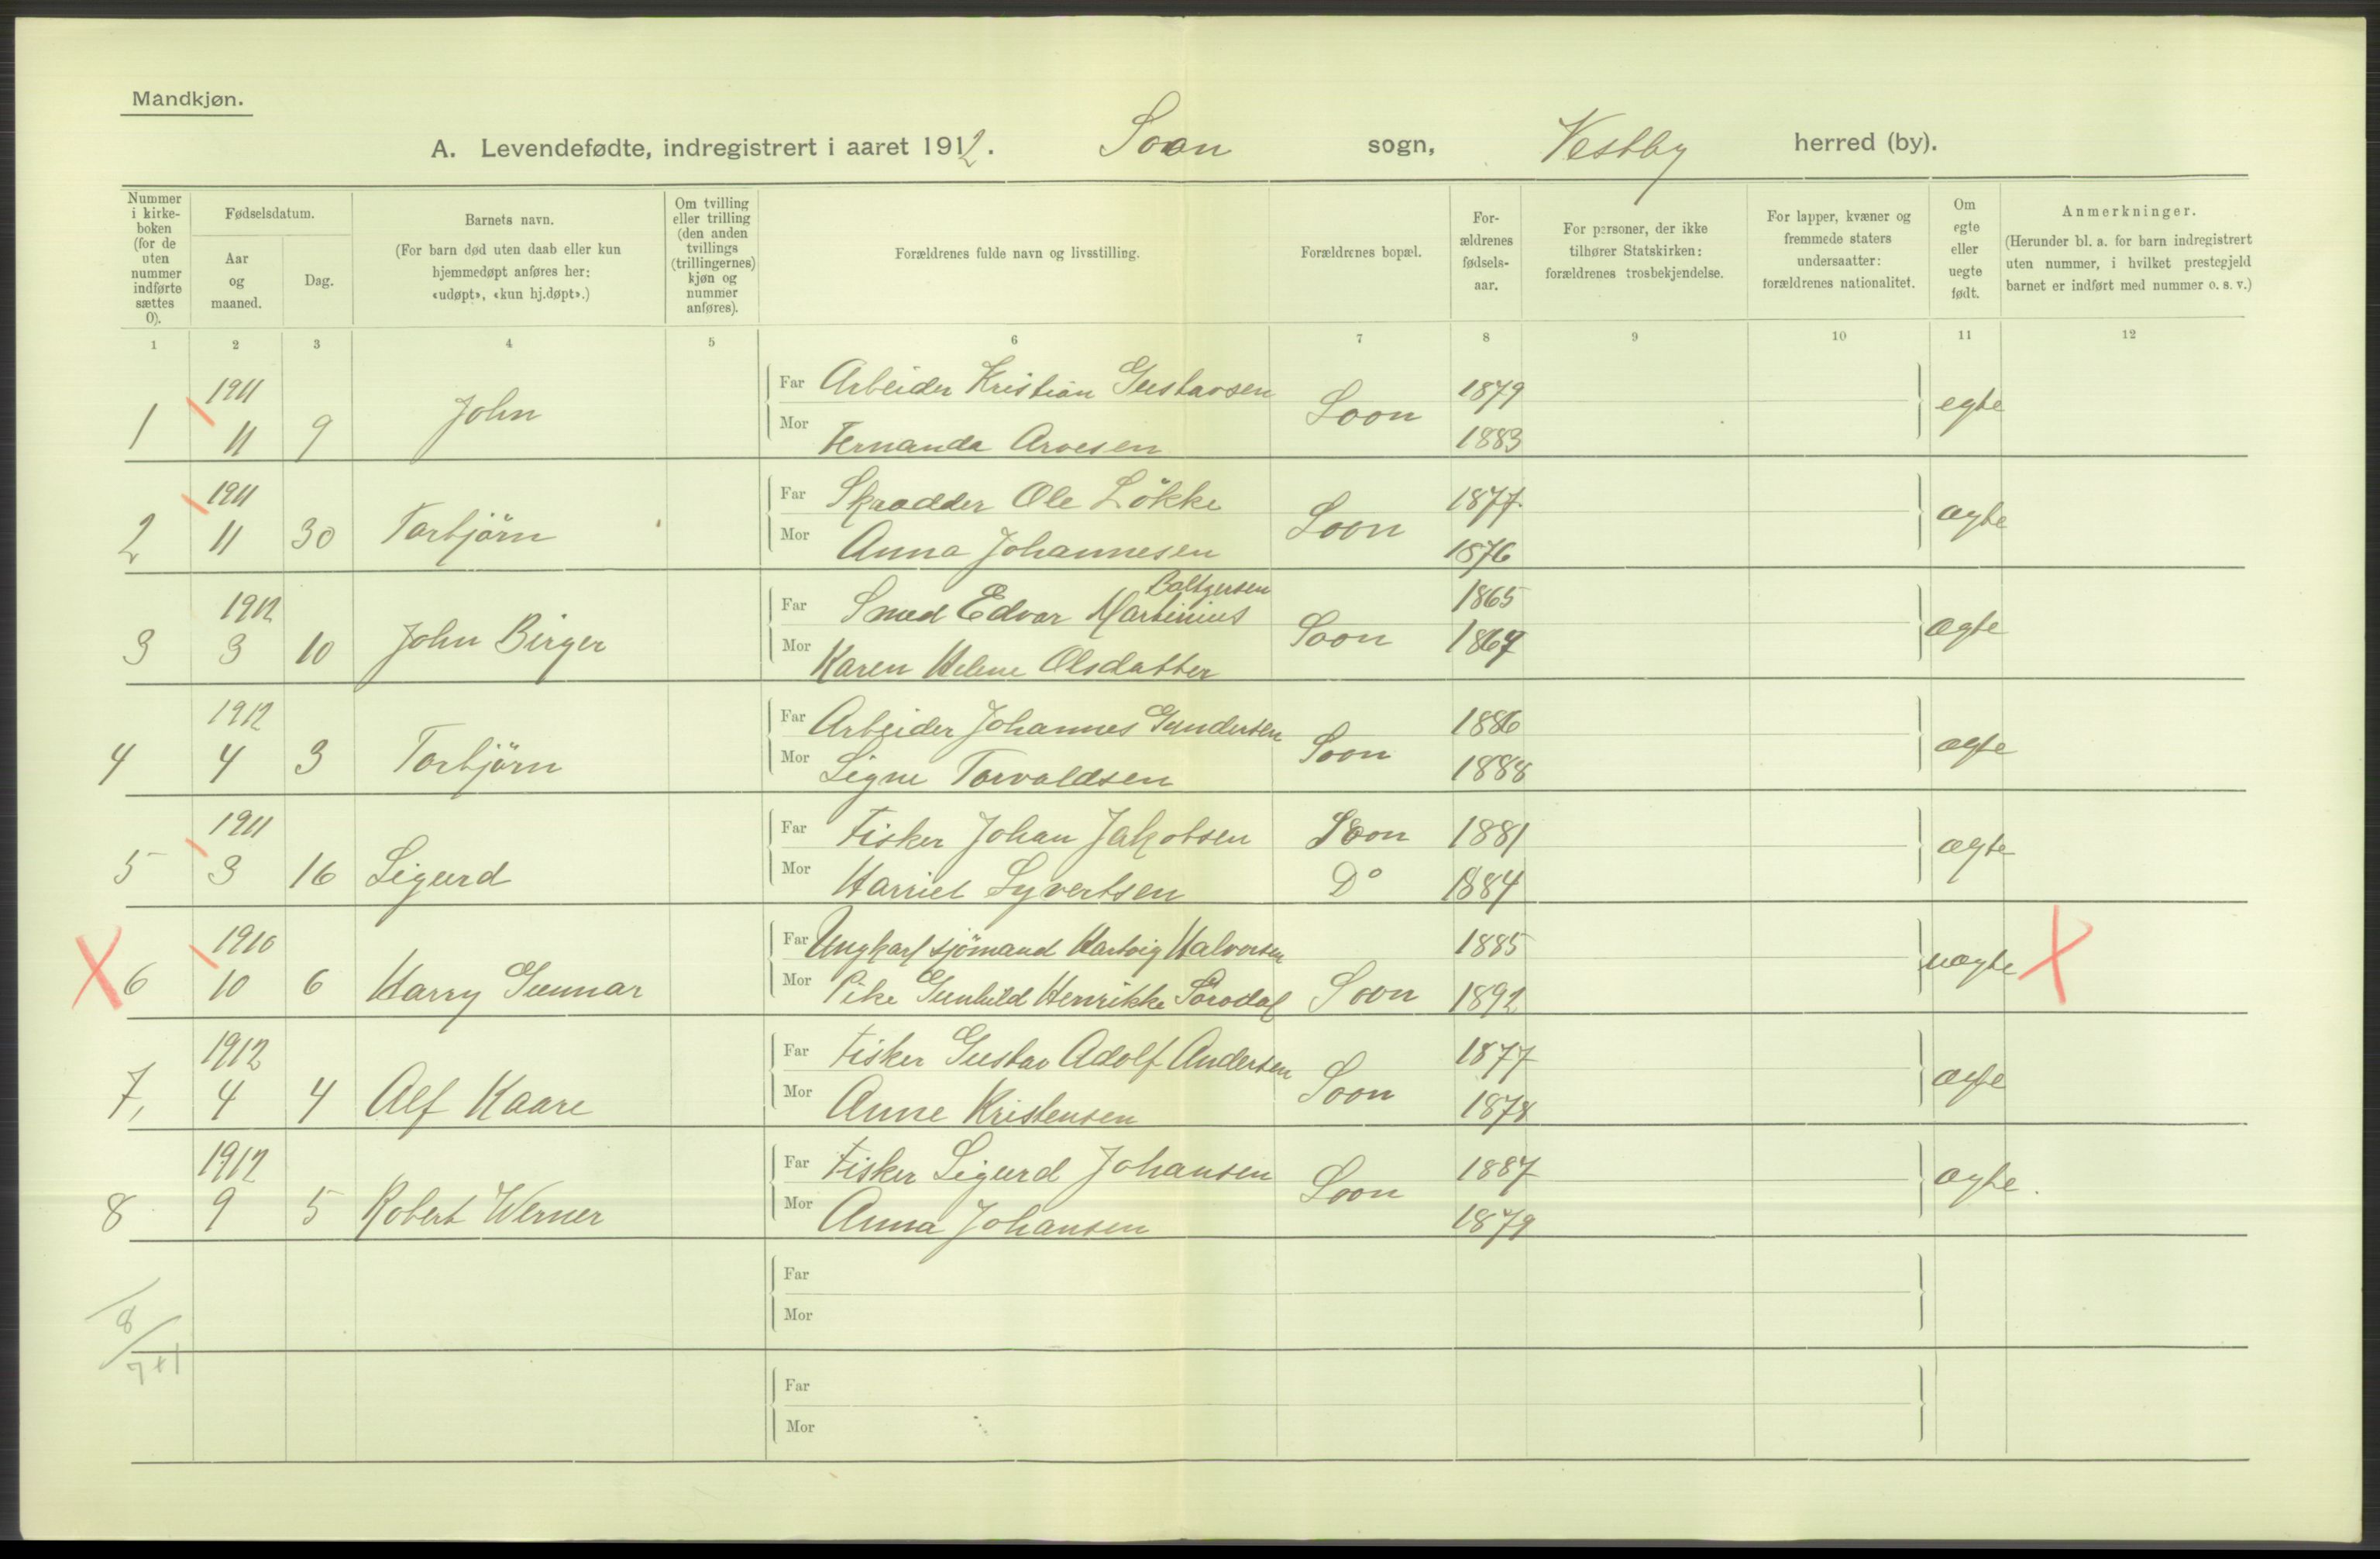 Mandkjøn.
A. Levendefødte, indregistrert i aaret 1912. Soon sogn, Vestby herred (by).
Nummer i kirke-boken (for de uten nummer indførte sættes 0).
Fødselsdatum.
Aar og maaned.
Dag.
Barnets navn.
(For barn død uten daab eller kun hjemmedøpt anføres her: «udøpt», «kun hj.døpt».)
Om tvilling eller trilling (den anden tvillings (trillingernes) kjøn og nummer anføres).
Forældrenes fulde navn og livsstilling.
Forældrenes bopæl.
For-ældrenes fødsels-aar.
For personer, der ikke tilhører Statskirken: forældrenes trosbekjendelse.
For lapper, kvæner og fremmede staters undersaatter: forældrenes nationalitet.
Om egte eller uegte født.
Anmerkninger.
(Herunder bl. a. for barn indregistrert uten nummer, i hvilket prestegjeld barnet er indført med nummer o. s. v.)
1 2 3 4 5 6 7 8 9 10 11 12
1911 Far Arbeider Kristian Gustavsen 1879
1 11 9 John Soon egte
Mor Fernanda Arvesen 1883
1911 Far Skrædder Ole Lökke 1877
2 11 30 Torbjörn Soon ægte
Mor Anna Johannesen 1876
Baltzersen
1912 Far Smed Edvar Martinius 1865
3 3 10 John Birger Soon ægte
Mor Karen Helene Olsdatter
1912 Far Arbeider Johannes Gundersen 1886
4 4 3 Torbjörn Soon ægte
Mor Signe Torvaldsen 1888
1911 Far Fisker Johan Jakobsen Soon 1881
5 3 16 Sigurd ægte
Mor Harriet Syvertsen Do 1884
1910 Far Ungkarl sjömand Hartvig Halvorsen 1885
X 6 10 6 Harry Gunnar uægte X
Mor Pike Gunhild Henrikke Soon 1892
1912 Far Fisker Gustav Adolf Andersen 1877
7, 4 4 Alf Kaare Soon ægte
Mor Anne Kristensen 1878
1912 Far Fisker Sigurd Johansen 1887
8 9 5 Robert Werner Soon ægte.
Mor Anna Johansen 1879
Far
8
Mor
7+1
Far
Mor